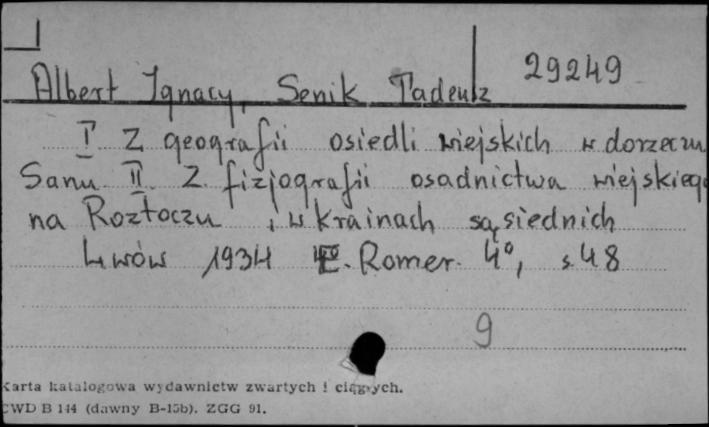 29249
Albert Ignacy, Senik Tadeusz
I Z geografii osiedli wiejskich w dorzeczu
Sanu II. Z fizjografii osadnictwa wiejskiego
na Roztoczu i w krainach sąsiednich
Lwów 1934 E. Romer. 4°, s. 48
9
Karta katalogowa wydawnictw zwartych i ciągłych.
CWD B 144 (dawny B-15b). ZGG 91.